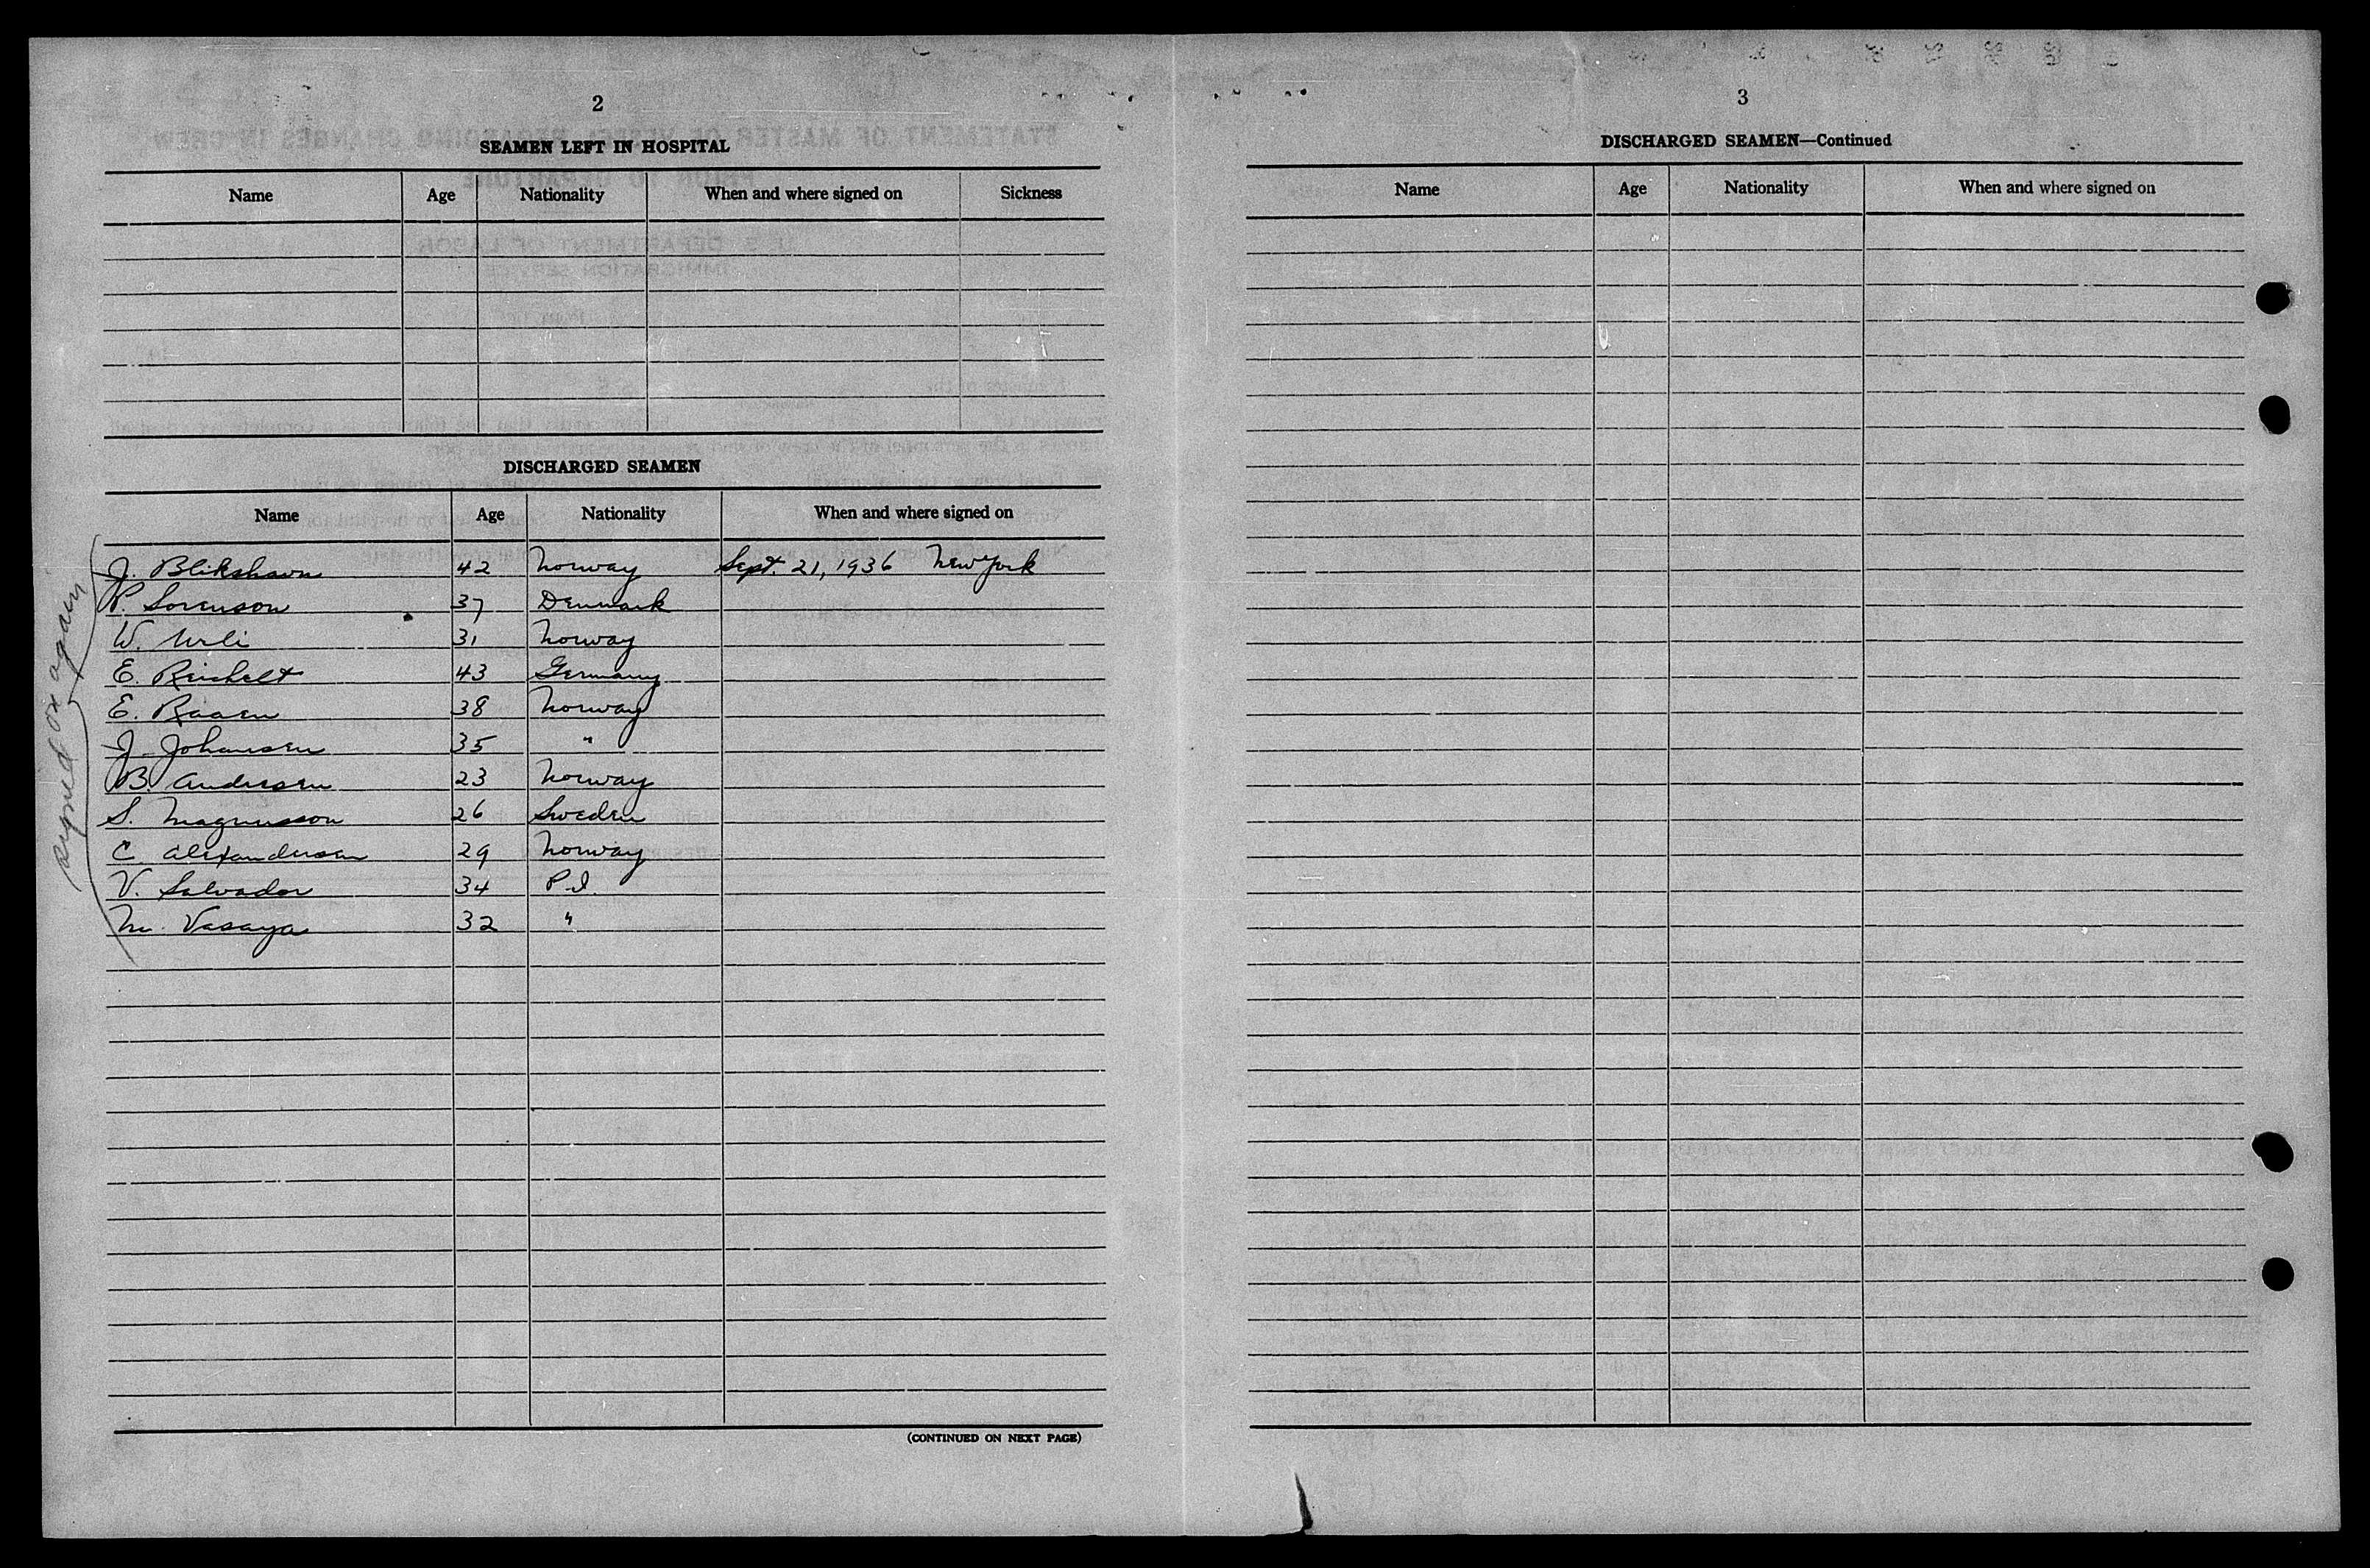 2
SEAMEN LEFT IN HOSPITAL
Name Age Nationality When and where signed on Sickness
DISCHARGED SEAMEN
Name Age Nationality When and where signed on
J. Blikshavn 42 Norway Sept. 21, 1936 New York
P. Sorenson 37 Denmark
W. Urli 31 Norway
E. Reichelt 43 Germany
E. Raaen 38 Norway
J. Johansen 35 "
B. Andersen 23 Norway
S. Magnusson 26 Sweden
C. Alexandersen 29 Norway
V. Salvador 34 P.I.
M. Vasaya 32 "
signed on again
(CONTINUED ON NEXT PAGE)
3
DISCHARGED SEAMEN—Continued
Name Age Nationality When and where signed on